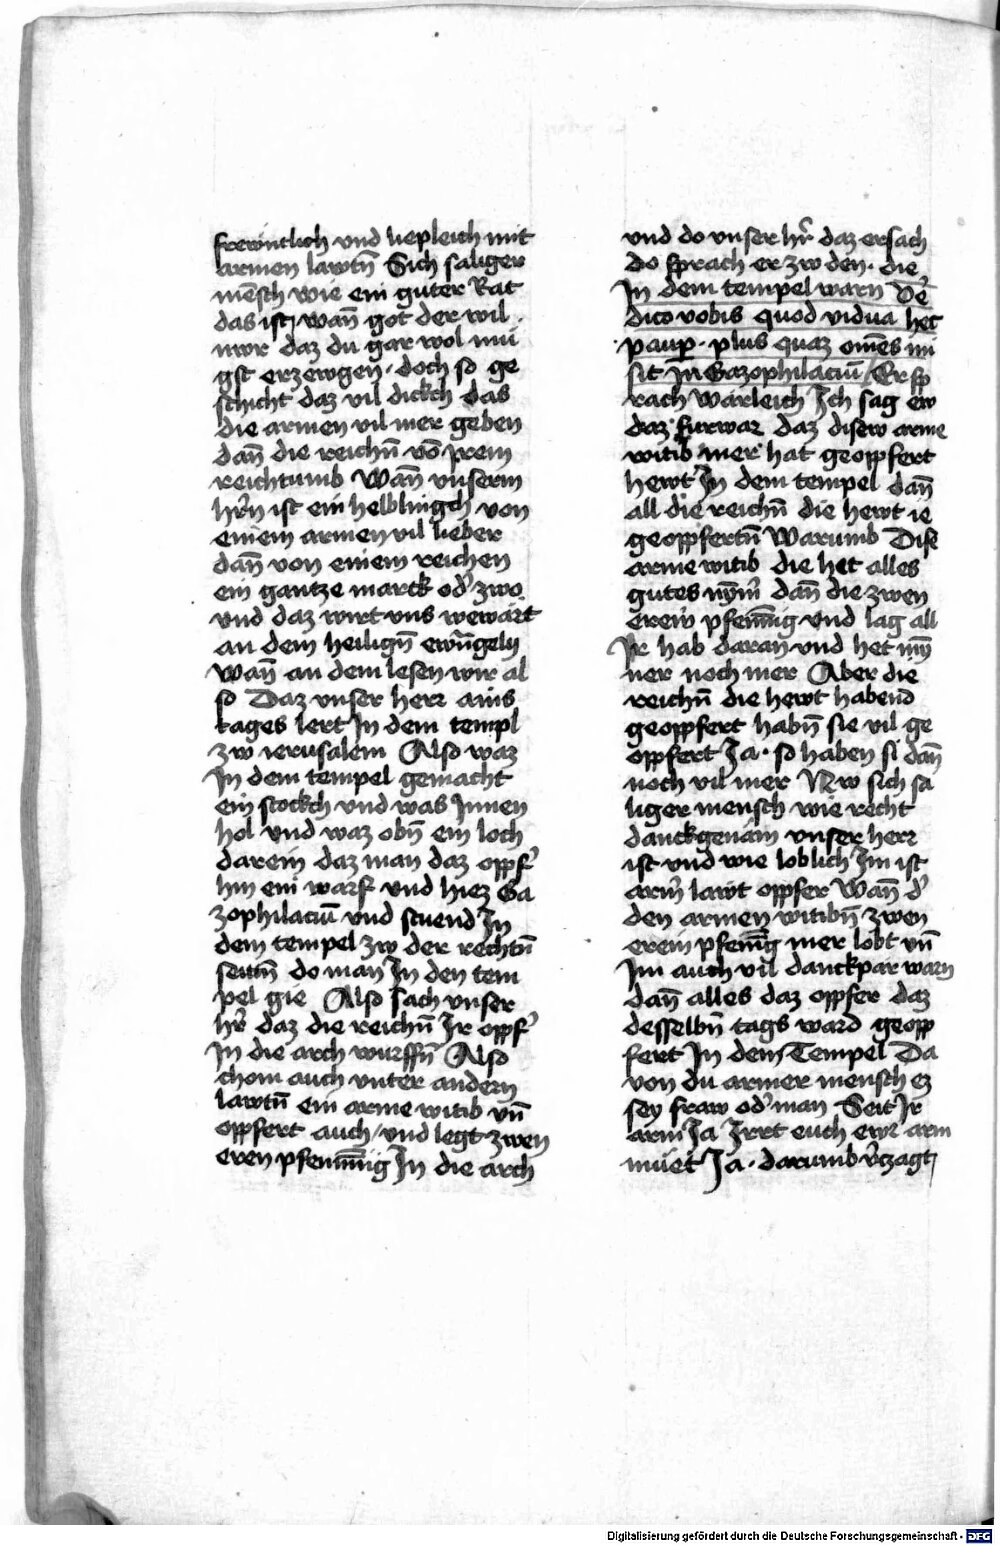 frewntlich vnd liepleich mit
armen lawtn̄ Sich saliger
mēsch wie ein guter Rat
das ist wan̄ got der wil
nwr daz du gar wol mu
gst erzewgen · doch so ge
schicht daz vil dickch das
die armen vil mer geben
dan̄ die reichn̄ vō irem
reichtumb Wan̄ vnserm
hr̄n ist ein helblingch von
einem armen vil lieber
dan̄ von einem reichen
ein gantze marck od' zwo
vnd daz wirt vns wewart
an dem heilign̄ ewāgely
Wan̄ an dem lesen wir al
so Daz vnser herr ains
tages lert In dem templ
zw ierusalem Also waz
In dem tempel gemacht
ein stockch vnd was Innen
hol vnd waz obn̄ ein loch
darein daz man daz oppf'
hin ein warf vnd hiez Ga
zophilaciū vnd stuend In
dem tempel zw der rechtn̄
seittn̄ do man In den tem
pel gie Also sach vnser
hr̄ daz die reichn̄ Ir oppf'
In die arch wurffn̄ Also
chom auch vnter andern
lawtn̄ ein arme witib vn̄
oppfert auch / vnd legt zwen
eren pfenning In die arch
vnd do vnser hr̄ daz ersach
do sprach er zw den · die
In dem tempel warn Ve'
dico vobis quod vidua hec
paup̄ · plus quaz om̄es mi
sit In Gazophilaciū / Er sp
rach Warleich Ich sag ew
daz furwar daz disew arme
witib mer hat geoppfert
hewt In dem tempel dan̄
all die reichn̄ die hewt ie
geoppfertn̄ Warumb Dise
arme witib die het alles
gutes nym̄ dan̄ die zwen
erein pfenning vnd lag all
Ir hab daran vnd het nȳ
ner noch mer Aber die
reichn̄ die hewt habend
geoppfert habn̄ sie vil ge
oppfert Ja · so haben si dan̄
noch vil mer Nw sich sa
liger mensch wie recht
danckgenām vnser herr
ist vnd wie loblich Im ist
arm̄ lawt oppfer Wan̄ d'
den armen witibn̄ zwen
erein pfenīg mer lobt vn̄
Im auch vil danckpār warn
dan̄ alles daz oppfer daz
desselbn̄ tags ward geopp
fert In dem Tempel Da
von du armer mensch ez
sey fraw od' man Seit Ir
arm Ja Irrt euch ewr arm
müet Ja · darumb v'czagt
Digitalisierung gefördert durch die Deutsche Forschungsgemeinschaft - DFG